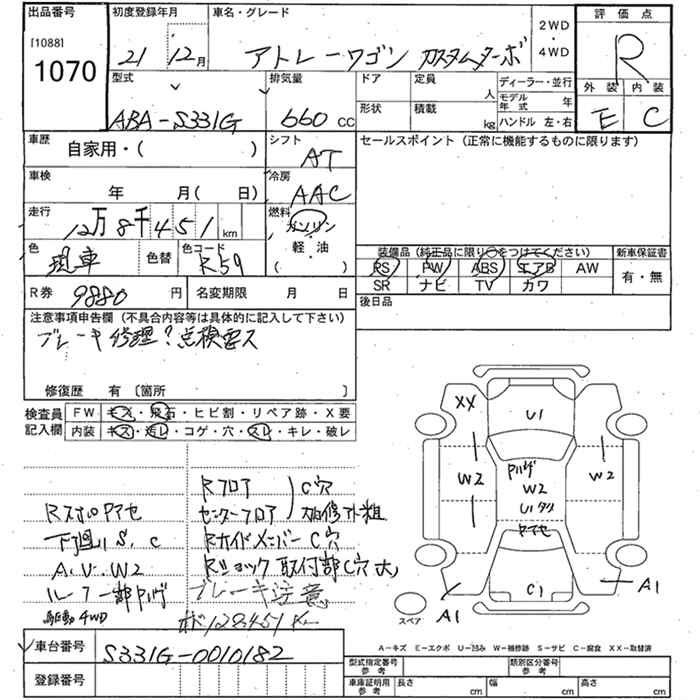 出品番号 初度登録年月 車名・グレード 2WD・4WD 評価点
[1088]
1070
21 12月 アトレーワゴン カスタムターボ R
型式 排気量 ドア 定員 人 ディーラー・並行 外装 内装
ABA-S331G 660cc 形状 積載 kg モデル年式 年 ハンドル 左・右 E C
車歴 自家用・( ) シフト AT セールスポイント (正常に機能するものに限ります)
車検 年 月( 日) 冷房 AAC
走行 12万8千451km 燃料 ガソリン・軽・油 ( )
色 現車 色替 色コード R59
装備品 (純正品に限り○をつけてください) 新車保証書
PS PW ABS エアB AW 有・無
SR ナビ TV カワ
R券 9880円 名変期限 月 日 後日品
注意事項申告欄 (不具合内容等は具体的に記入して下さい)
ブレーキ修理?点検要ス
修復歴 有 〔箇所 〕
検査員記入欄 FW キズ・飛石・ヒビ割・リペア跡・X要
内装 キズ・汚レ・コゲ・穴・スレ・キレ・破レ
Rフロア C穴
Rスポアセ センターフロア 加修アト粗
下廻りS、C Rサイドメンバー C穴
A.U.W2 Rショック取付部C穴大
ルーフ一部Pハゲ ブレーキ注意
駆動4WD 128451K
XX U1
W2 Pハゲ W2 W2
U1
ヤケアセ
C1
A1 A1
スペア
車台番号 S331G-0010182
登録番号
A-キズ E-エクボ U-凹み W-補修跡 S-サビ C-腐食 XX-取替済
型式指定番号 参考 類別区分番号 参考
車庫証明用 参考 長さ cm 幅 cm 高さ cm